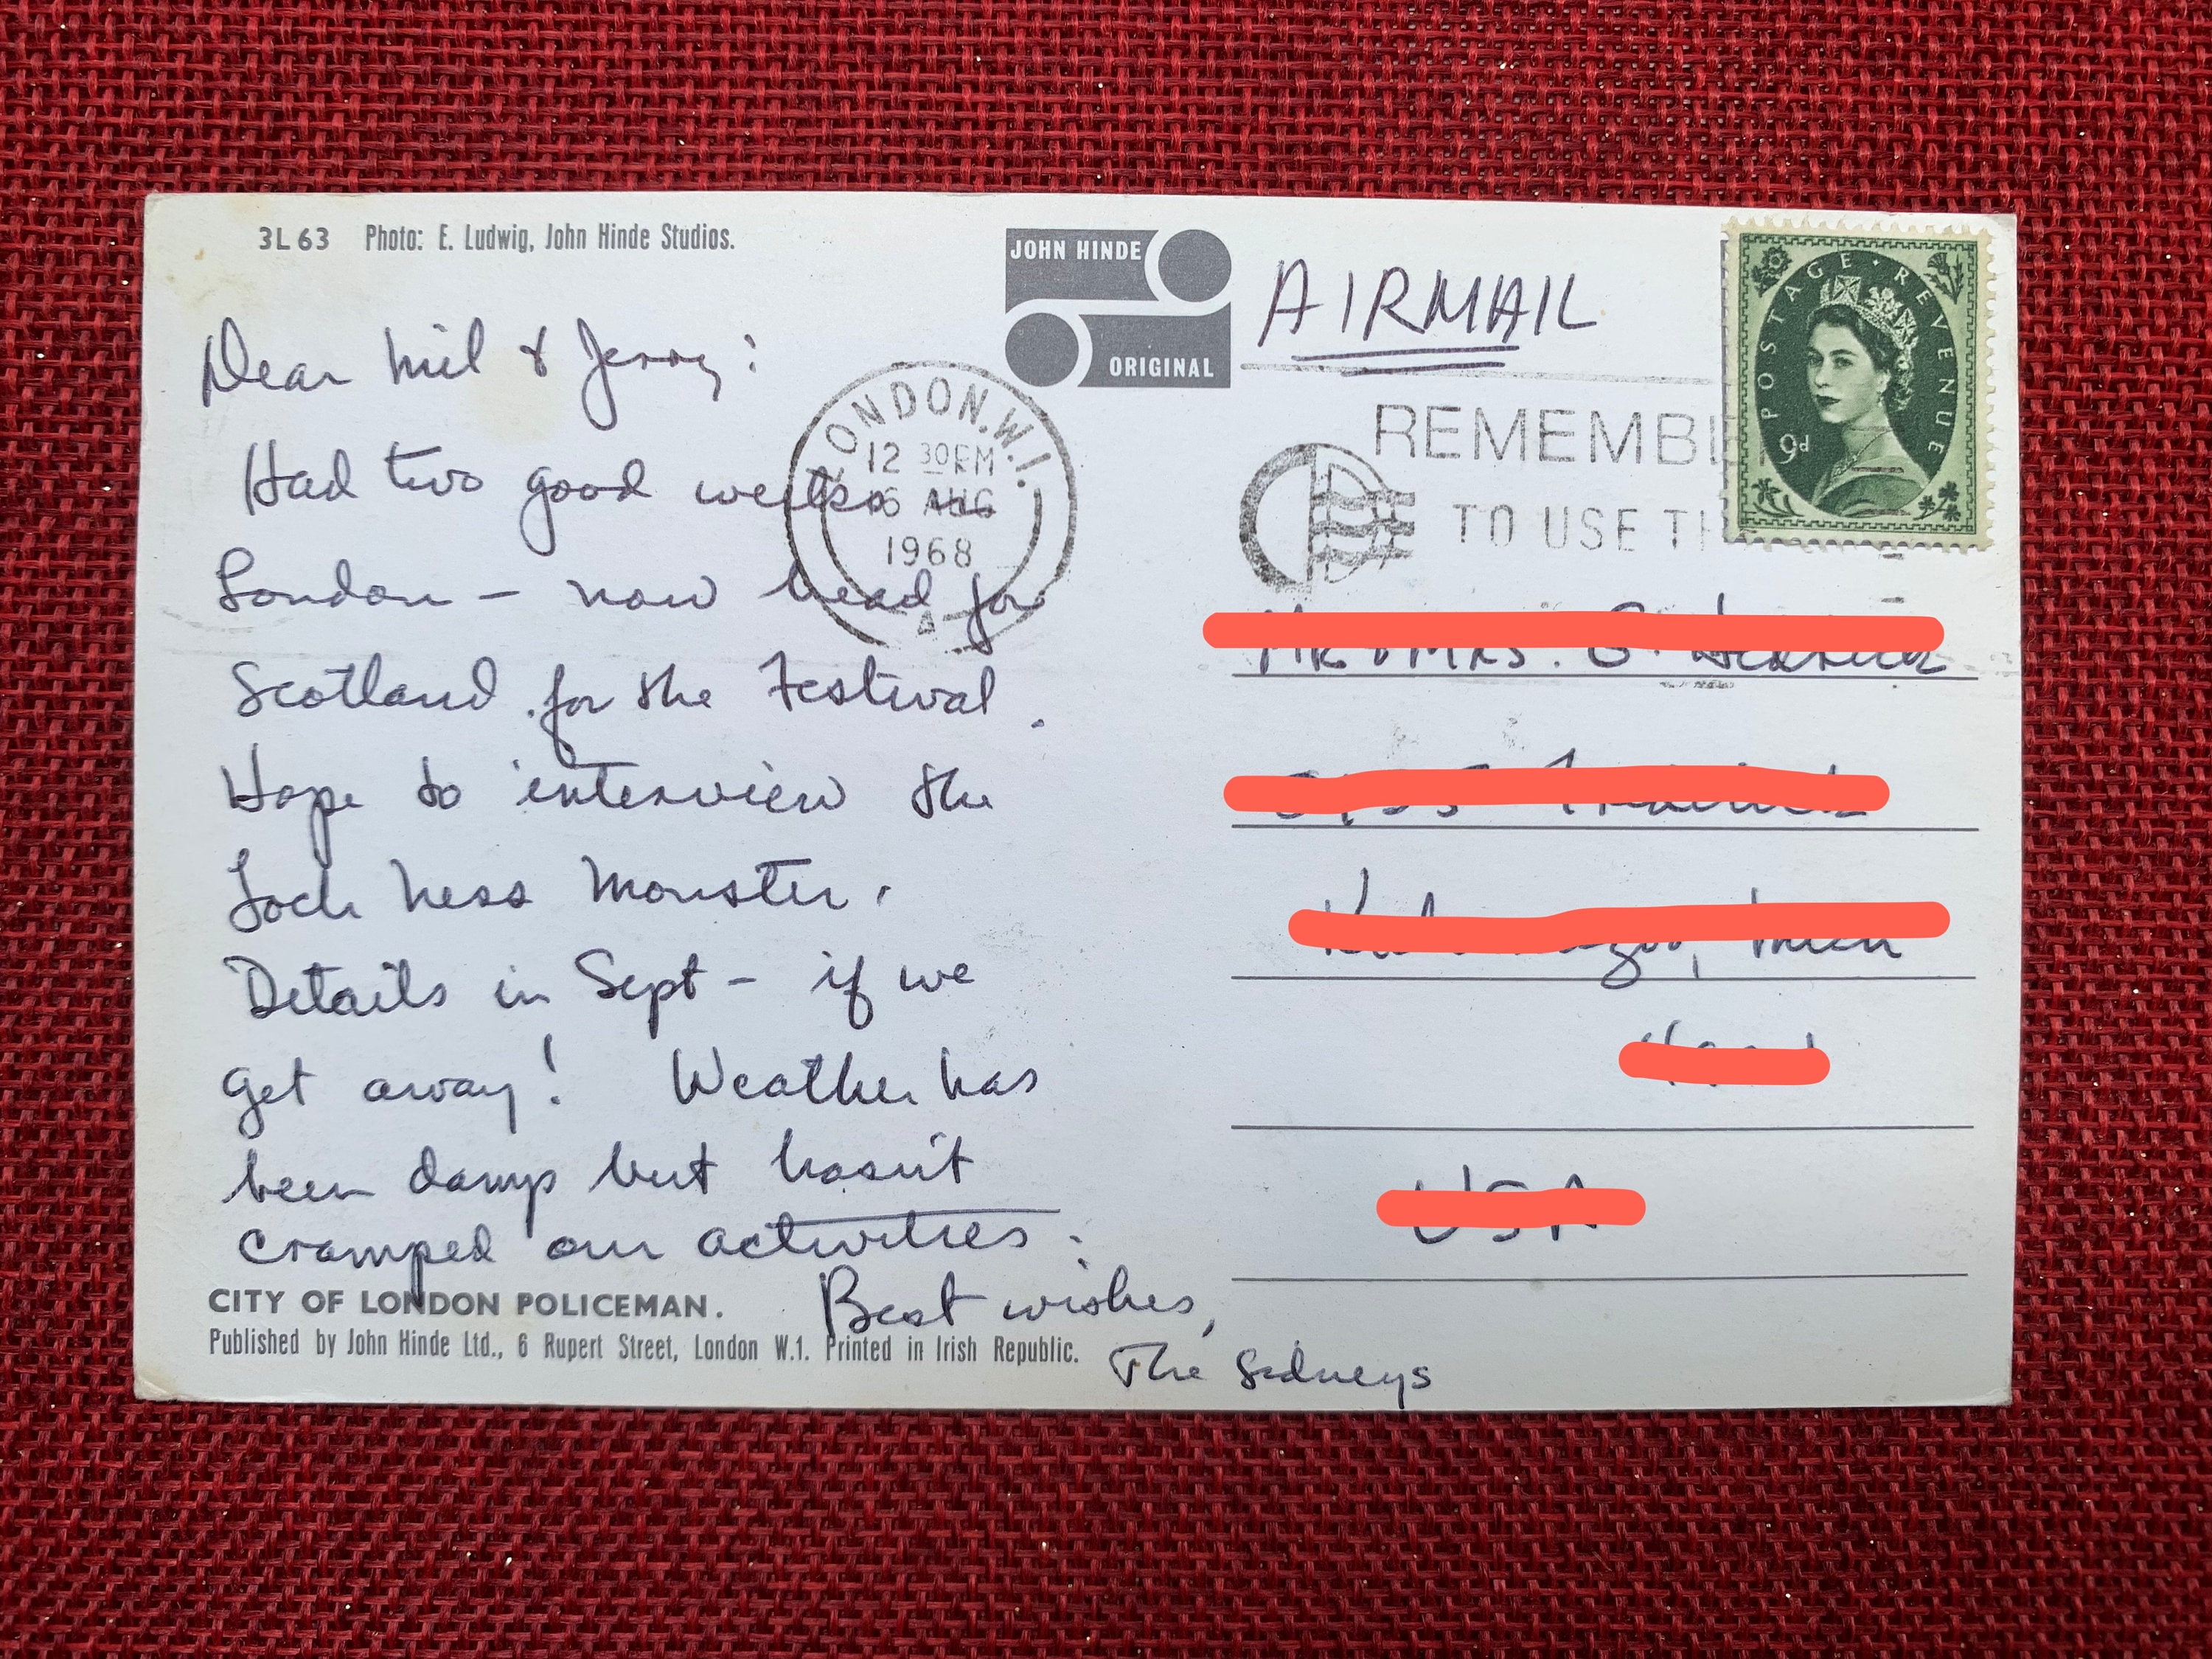 3L63 Photo: E. Ludwig, John Hinde Studios.
JOHN HINDE
ORIGINAL
AIRMAIL
POSTAGE · REVENUE
9d
Dear Mil & Jerry:
Had two good weeks in
London – now head for
Scotland for the Festival.
Hope to interview the
Loch Ness Monster.
Details in Sept – if we
get away! Weather has
been damp but hasn't
cramped our activities.
Best wishes,
The Sidneys
LONDON. W.1.
12 30 PM
AUG
1968
A
REMEMBE
TO USE TH
CITY OF LONDON POLICEMAN.
Published by John Hinde Ltd., 6 Rupert Street, London W.1. Printed in Irish Republic.